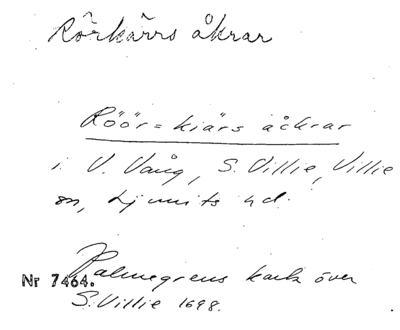 Rörkärrs åkrar
Röör=kiärs åckrar
i V. Vång, S. Villie, Villie
sn, Ljunits hd.
Nr 7464. Palmegrens karta över
S. Villie 1698.